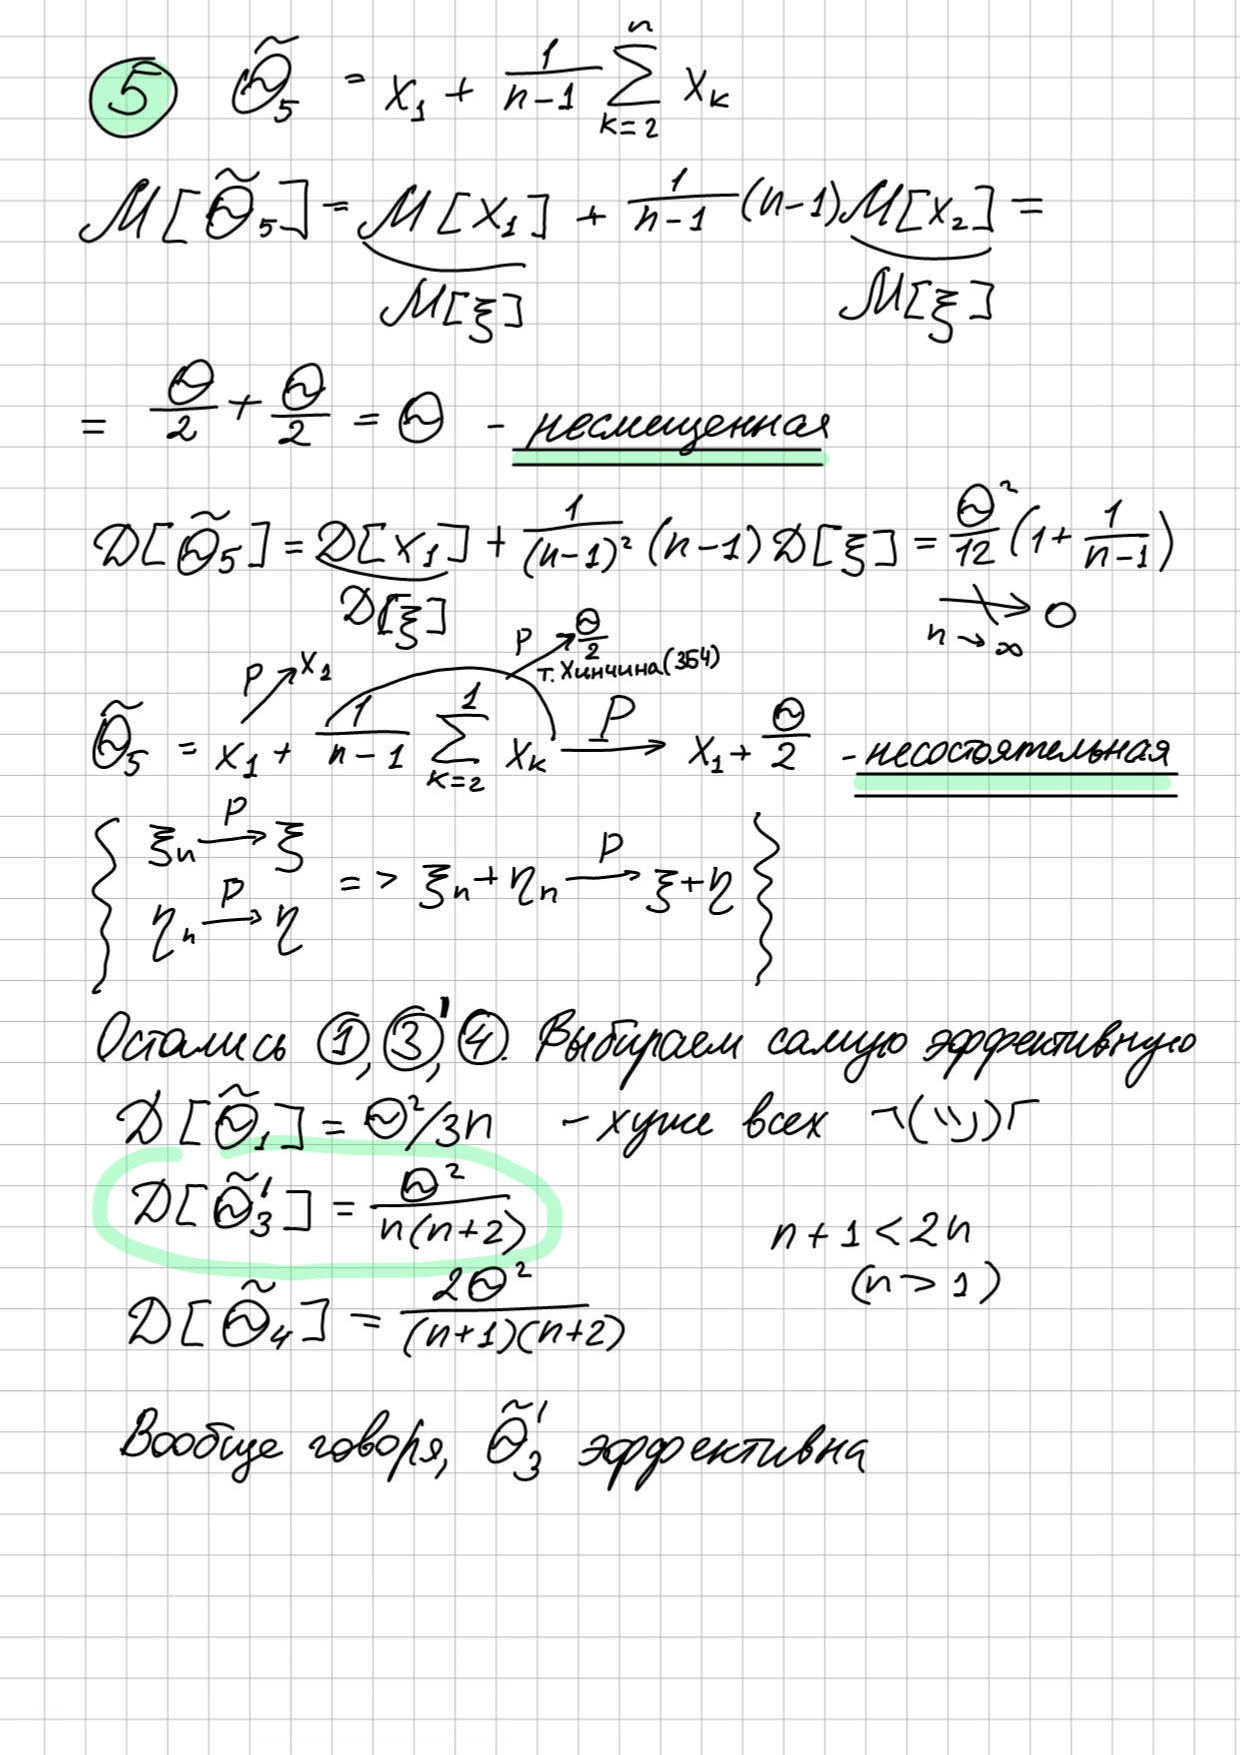 5 Θ̃₅ = x₁ + 1/(n-1) ∑_{k=2}^{n} xₖ
M[Θ̃₅] = M[x₁] + 1/(n-1) (n-1) M[x₂] =
M[ξ] M[ξ]
= Θ/2 + Θ/2 = Θ - несмещенная
D[Θ̃₅] = D[x₁] + 1/(n-1)² (n-1) D[ξ] = Θ²/12 (1 + 1/(n-1))
D[ξ] ↛ 0 n→∞
P x₁ P Θ/2 т. Хинчина (ЗБЧ)
Θ̃₅ = x₁ + 1/(n-1) ∑_{k=2}^{1} xₖ —P→ x₁ + Θ/2 - несостоятельная
{ ξₙ —P→ ξ
ηₙ —P→ η => ξₙ + ηₙ —P→ ξ + η }
Остались ①, ③', ④. Выбираем самую эффективную
D[Θ̃₁] = Θ²/3n - хуже всех ¬(ツ)Γ
D[Θ̃₃'] = Θ²/n(n+2)
n + 1 < 2n
(n > 1)
D[Θ̃₄] = 2Θ²/(n+1)(n+2)
Вообще говоря, Θ̃₃' эффективна